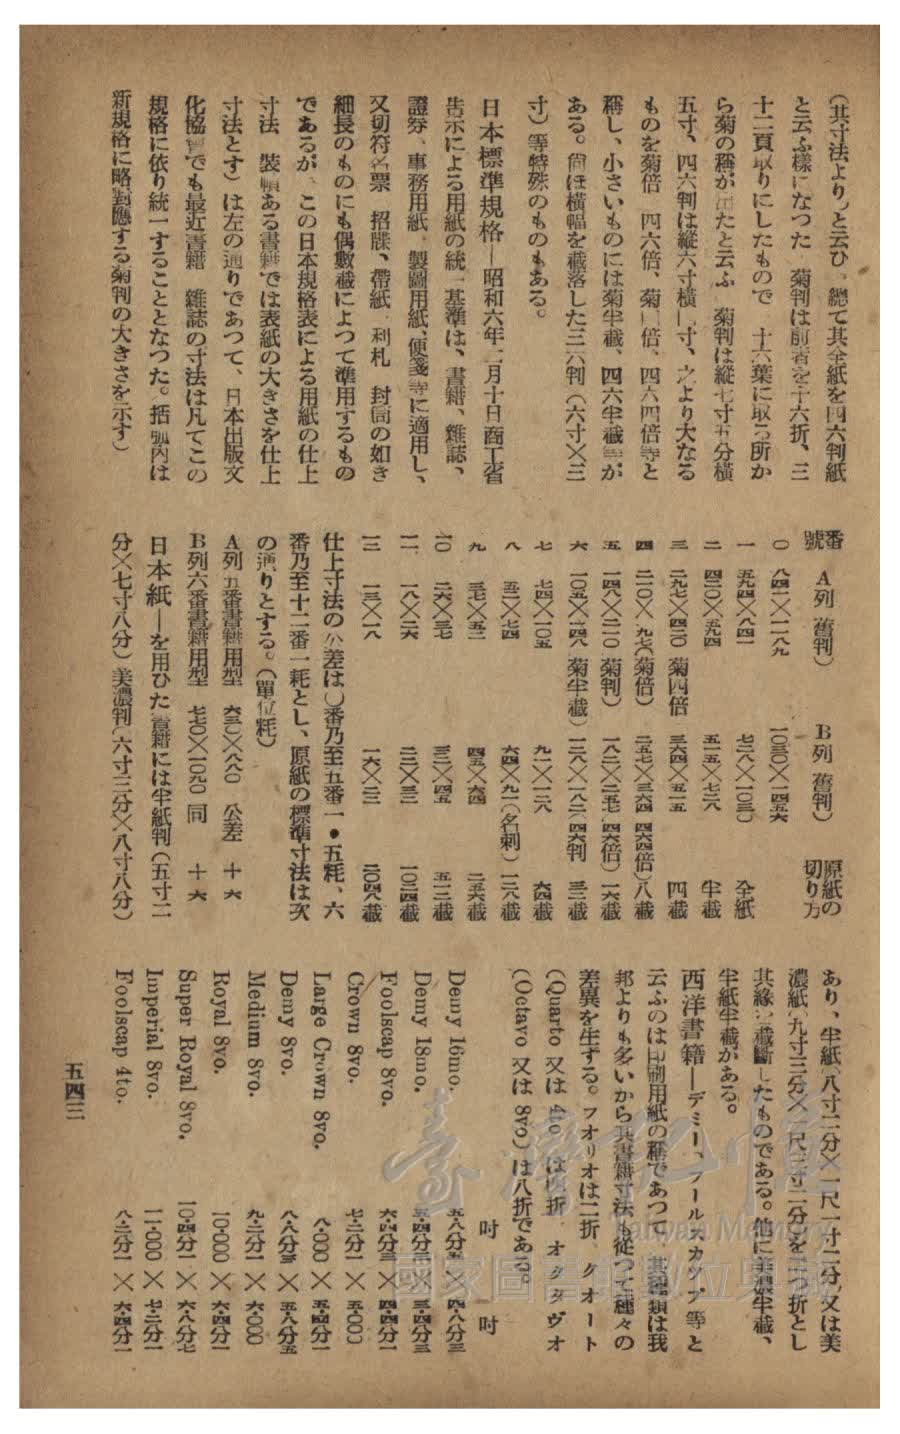 (其寸法より)と云ひ、總て其全紙を四六判紙
と云ふ樣になつた 菊判は前者を十六折、三
十二頁取りにしたもので 十六葉に取る所か
ら菊の稱が出たと云ふ 菊判は縱七寸五分橫
五寸、四六判は縱六寸橫 寸、之より大なる
ものを菊倍 四六倍、菊四倍、四六四倍等と
稱し、小さいものには菊半截、四六半截等が
ある。尙ほ橫幅を截落した三六判(六寸×三
寸)等特殊のものもある。
日本標準規格—昭和六年二月十日商工省
告示による用紙の統一基準は、書籍、雜誌、
證券、事務用紙、製圖用紙、便箋等に適用し、
又切符名票 招牒、帶紙、利札 封筒の如き
細長のものにも偶數截によつて準用するもの
であるが、この日本規格表による用紙の仕上
寸法 裝幀ある書籍では表紙の大きさを仕上
寸法とす)は左の通りであつて、日本出版文
化協會でも最近書籍 雜誌の寸法は凡てこの
規格に依り統一することとなつた。括弧內は
新規格に略對應する菊判の大きさを示す)
番號 A列(舊判) B列(舊判) 原紙の切り方
〇 八四一×一一八九 一〇三〇×一四五六
一 五九四×八四一 七二八×一〇三〇 全紙
二 四二〇×五九四 五一五×七二八 半截
三 二九七×四二〇 菊四倍 三六四×五一五 四截
四 二一〇×二九七(菊倍) 二五七×三六四(四六四倍) 八截
五 一四八×二一〇(菊判) 一八二×二五七(四六倍) 一六截
六 一〇五×一四八(菊半截) 一二八×一八二(四六判 三二截
七 七四×一〇五 九一×一二八 六四截
八 五二×七四 六四×九一(名刺) 一二八截
九 三七×五二 四五×六四 二五六截
一〇 二六×三七 三二×四五 五一二截
一一 一八×二六 二二×三二 一〇二四截
一二 一三×一八 一六×二二 二〇四八截
仕上寸法の公差は〇番乃至五番一・五粍、六
番乃至十二番一粍とし、原紙の標準寸法は次
の通りとする。(單位粍)
A列五番書籍用型 六三〇×八八〇 公差 十六
B列六番書籍用型 七七〇×一〇九〇 同 十六
日本紙—を用ひた書籍には半紙判(五寸二
分×七寸八分)美濃判(六寸三分×八寸八分)
あり、半紙(八寸二分×一尺一寸二分)又は美
濃紙(九寸三分× 尺三寸二分)を二つ折とし
其緣を截斷したものである。他に美濃半截、
半紙半截がある。
西洋書籍—デミー、フールスカツプ等と
云ふのは印刷用紙の稱であつて 其種類は我
邦よりも多いから其書籍寸法も從つて種々の
差異を生ずる。フオリオは二折、クオート
(Quarto 又は 4to)は四折、オクタヴオ
(Octavo 又は 8vo)は八折である。
吋 吋
Demy 16mo. 五・八分五 × 四・八分三
Demy 18mo. 五・四分三 × 三・四分三
Foolscap 8vo. 六・四分三 × 四・四分一
Crown 8vo. 七・二分一 × 五・〇〇〇
Large Crown 8vo. 八・〇〇〇 × 五・四分一
Demy 8vo. 八・八分三 × 五・八分五
Medium 8vo. 九・二分一 × 六・〇〇〇
Royal 8vo. 一〇・〇〇〇 × 六・四分一
Super Royal 8vo. 一〇・四分一 × 六・八分七
Imperial 8vo. 一一・〇〇〇 × 七・二分一
Foolscap 4to. 八・二分一 × 六・四分一
五四三
臺灣記憶
Taiwan Memory
國家圖書館數位典藏